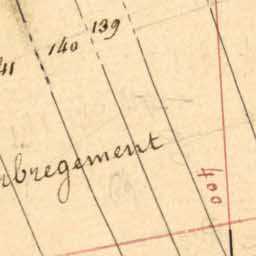 139
140
41
rbregement
400